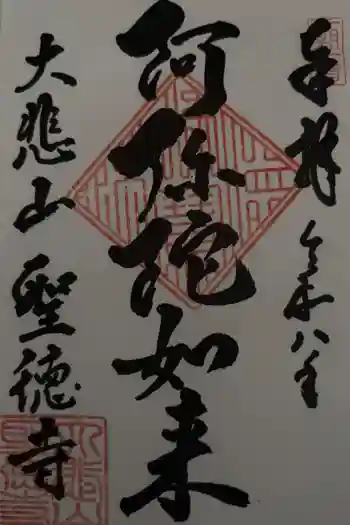 奉拝 令和八年
阿弥陀如来
大悲山 聖徳寺